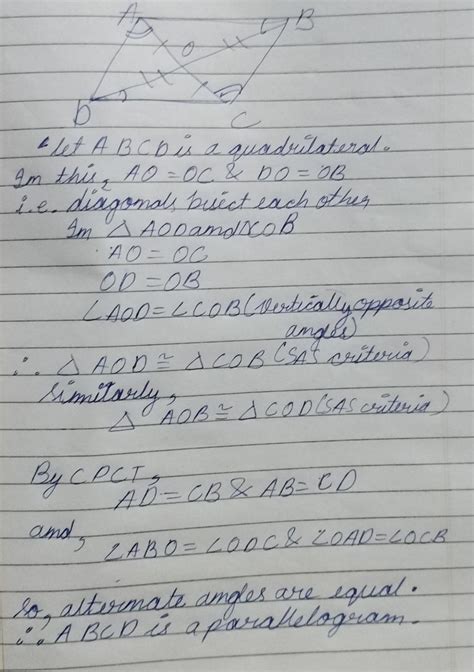 A B
O
D C
Let ABCD is a quadrilateral.
In this, AO = OC & DO = OB
i.e. diagonals bisect each other
In △ AOD and COB
AO = OC
OD = OB
∠AOD = ∠COB (Vertically opposite
angles)
∴ △ AOD ≅ △ COB (SAS criteria)
Similarly,
△ AOB ≅ △ COD (SAS criteria)
By CPCT,
AD = CB & AB = CD
and,
∠ABO = ∠ODC & ∠OAD = ∠OCB
So, alternate angles are equal.
∴ ABCD is a parallelogram.